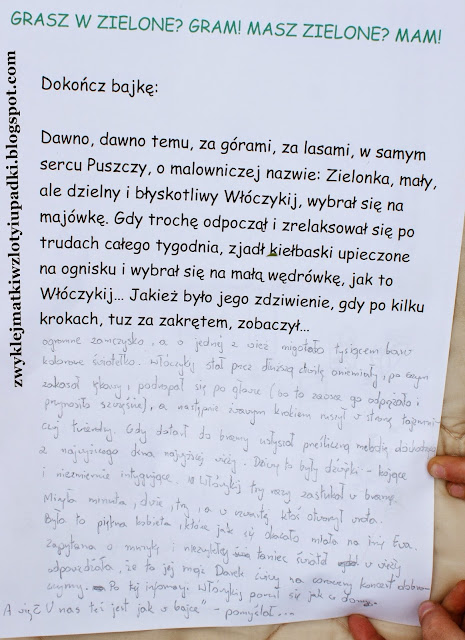 GRASZ W ZIELONE? GRAM! MASZ ZIELONE? MAM!
zwyklejmatkiwzlotyiupadki.blogspot.com
Dokończ bajkę:
Dawno, dawno temu, za górami, za lasami, w samym
sercu Puszczy, o malowniczej nazwie: Zielonka, mały,
ale dzielny i błyskotliwy Włóczykij, wybrał się na
majówkę. Gdy trochę odpoczął i zrelaksował się po
trudach całego tygodnia, zjadł kiełbaski upieczone
na ognisku i wybrał się na małą wędrówkę, jak to
Włóczykij... Jakież było jego zdziwienie, gdy po kilku
krokach, tuz za zakrętem, zobaczył...
ogromne zamczysko, a w jednej z wież migotało tysiącem barw
kolorowe światełko. Włóczykij stał przez dłuższą chwilę oniemiały, po czym
zakasał rękawy i podrapał się po głowie (bo to zawsze go odprężało i
przynosiło szczęście), a następnie żwawym krokiem ruszył w stronę tajemni-
czej twierdzy. Gdy dotarł do bramy usłyszał prześliczną melodię dochodzącą
z najwyższego okna najwyższej wieży. Dziwne to były dźwięki - kojące
i niezmiernie intrygujące. Włóczykij trzy razy zastukał w bramę.
Minęła minuta, dwie, trzy, a w ktoś otworzył wrota.
Była to piękna kobieta, która jak się okazało miała na imię Ewa.
Zapytana o muzykę i niezwykły taniec świateł w wieży
odpowiedziała, że to jej mąż Darek ćwiczy na coroczny koncert
Po tej informacji Włóczykij poczuł się jak w
A więc "U nas też jest jak w bajce" - pomyślał...